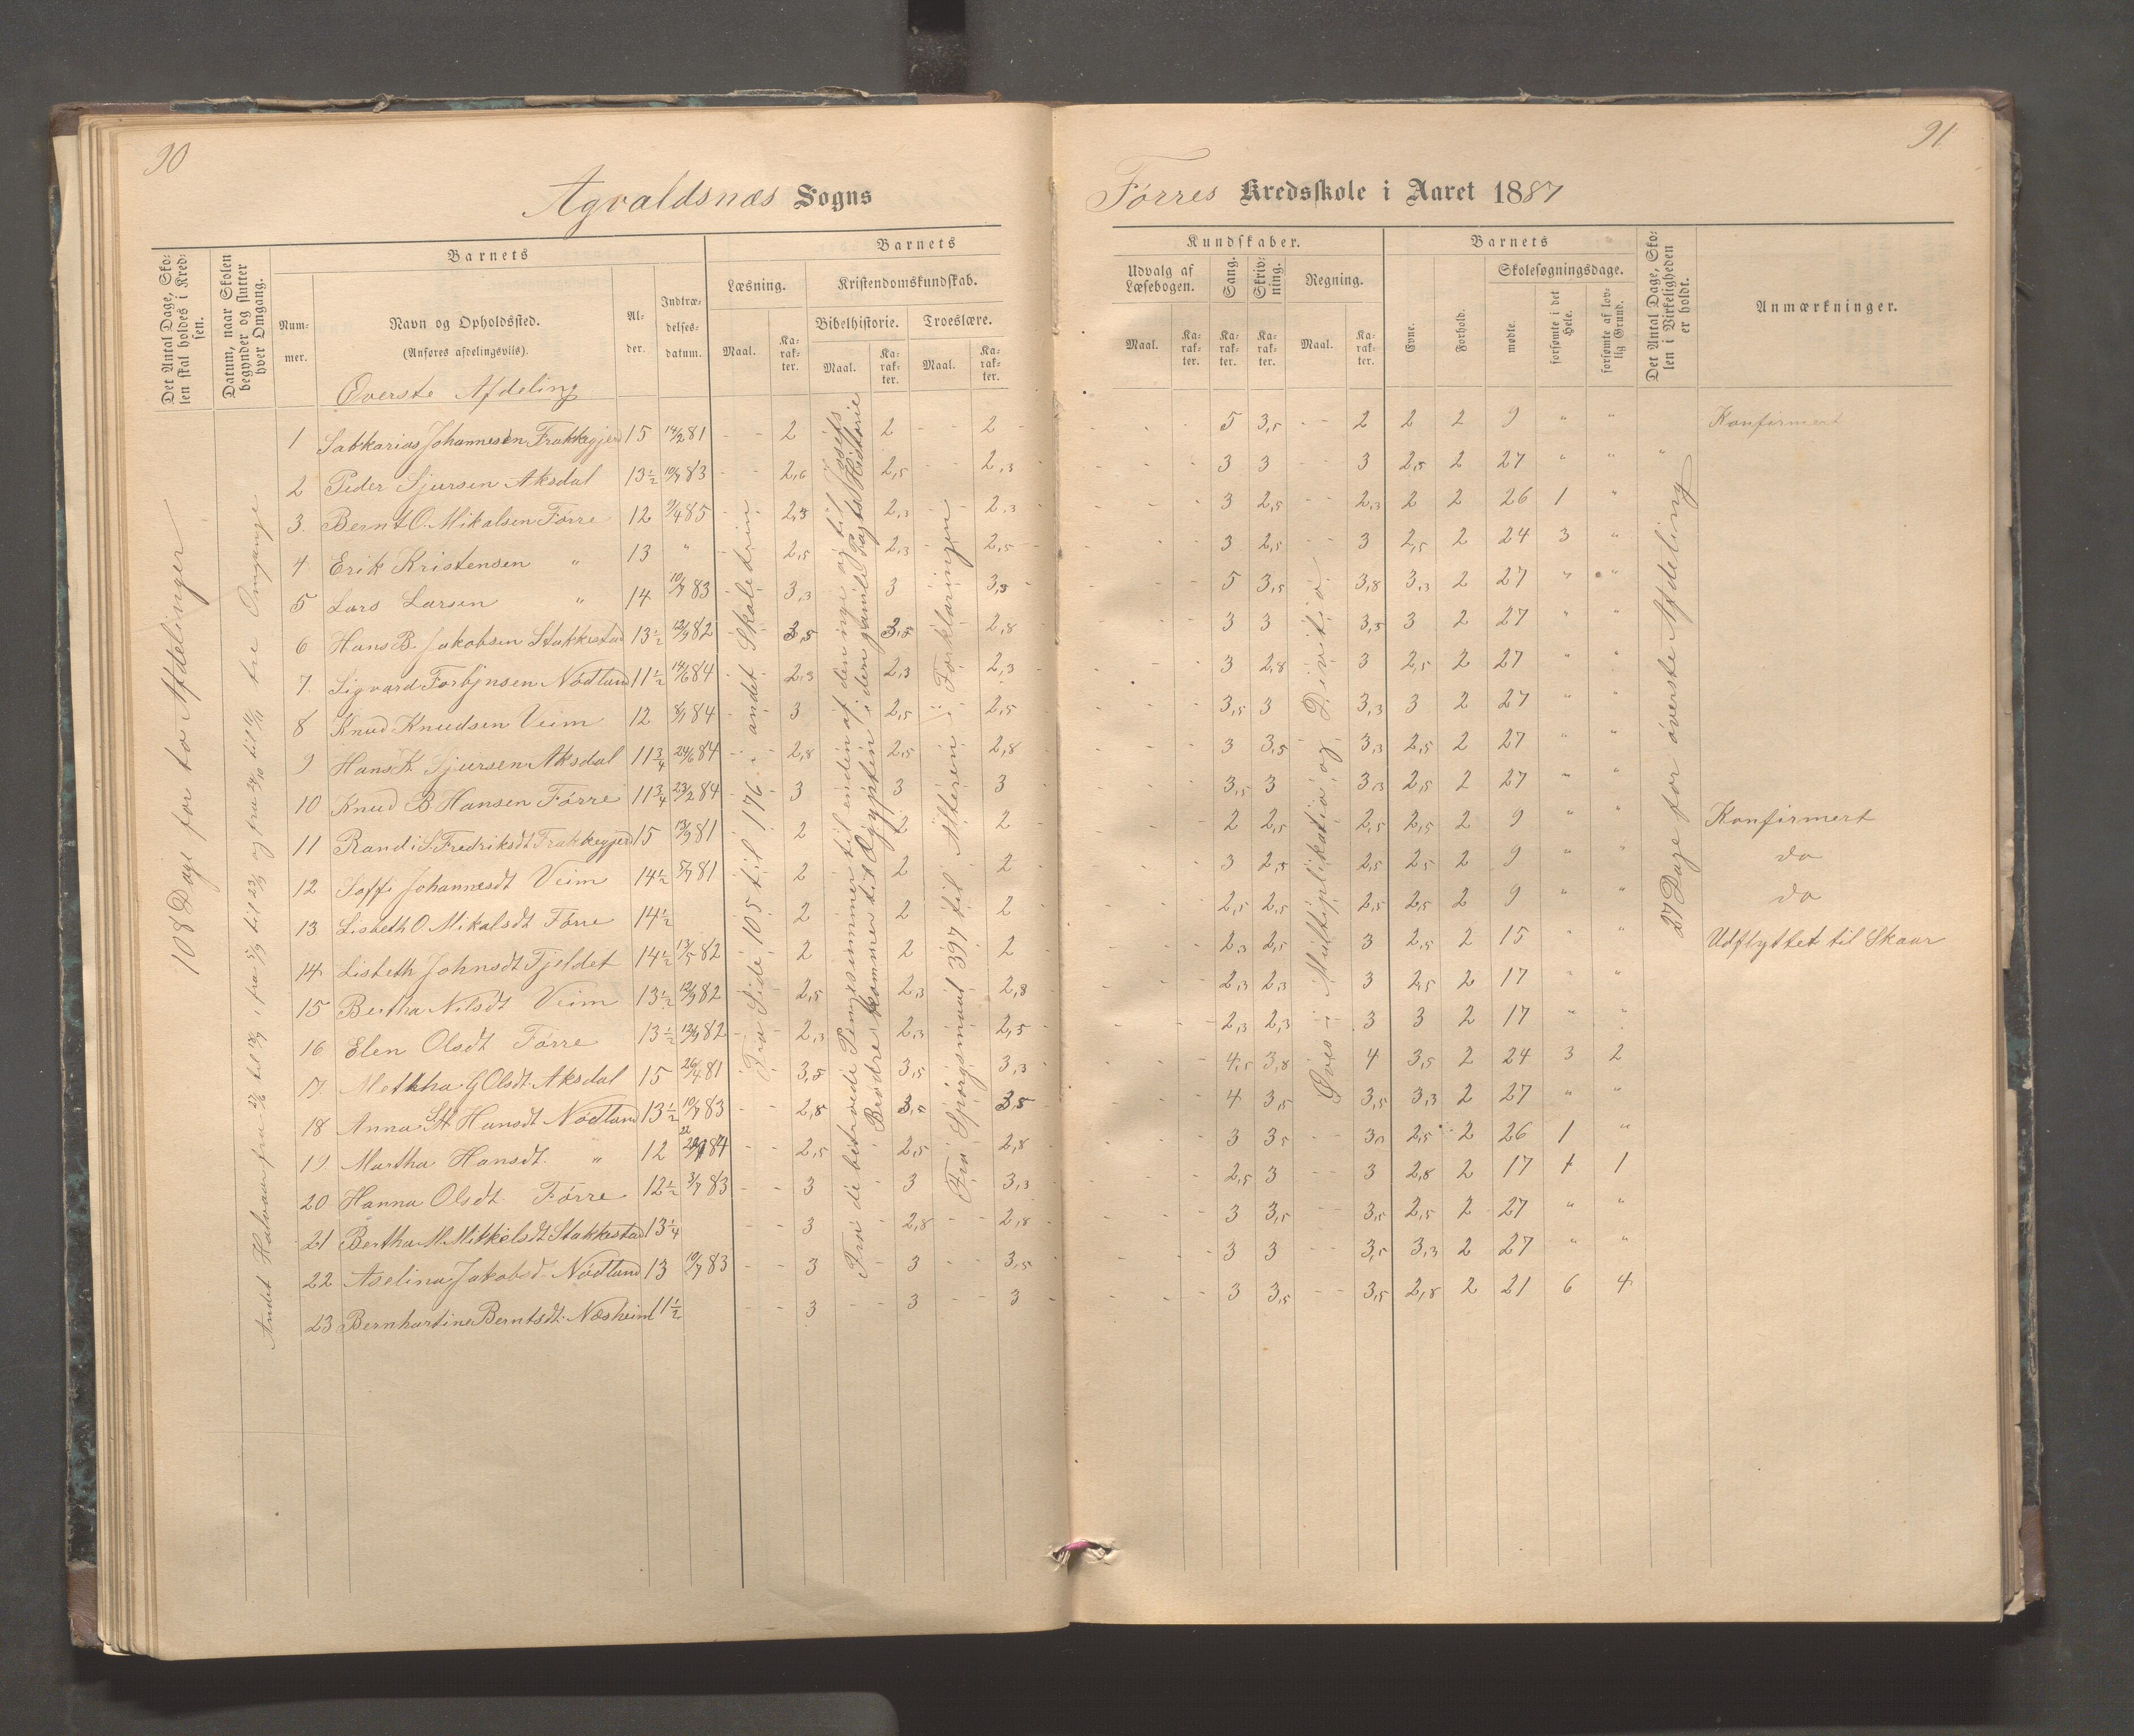 90
Agvaldsnæs Sogns
Det Antal Dage, Sko-
len skal holdes i Kred-
sen.
Datum, naar Skolen
begynder og slutter
hver Omgang.
Barnets
Num-
mer.
Navn og Opholdssted.
(Anføres afdelingsviis).
Al-
der.
Indtræ-
delses-
datum.
Barnets
Læsning.
Maal.
Ka-
rak-
ter.
Kristendomskundskab.
Bibelhistorie.
Maal.
Ka-
rak-
ter.
Troeslære.
Maal.
Ka-
rak-
ter.
Överste Afdeling
108 Dage for to Afdelinger
tre Omgange
Fra Side 105 til 176 andet Skoletrin
Fra Spörgsmaal 397 til Alteren i Forklaringen
1 Sakkarias Johannesen Frakkegjerd 15 14/2 81 - - 2 2 - - 2
2 Peder Sjursen Aksdal 13½ 10/7 83 - - 2,6 2,5 - - 2,3
3. Bernt O. Mikalsen Förre 12 9/4 85 2,3 2,3 2,3
4 Erik Kristensen " 13 " 2,5 2,3 2,5
5 Lars Larsen " 14 10/7 83 3,3 3 3,3
6 Hans B. Jakobsen Stakkestad 13½ 12/9 82 3,5 3,3 2,8
7. Sigvard Torbjnsen Nödland 11½ 14/6 84 2,3 2,3 2,3
8 Knud Knudsen Veim 12 8/7 84 3 2,5 2,5
9 Hans K. Sjursen Aksdal 11¾ 24/6 84 2,8 2,5 2,8
10 Knud B Hansen Förre 11¾ 23/2 84 3 3 3
11 Randi S. Fredriksdt Frakkegjerd 15 13/9 81 2 2 2
12 Soffi Johannesdt Veim 14½ 5/7 81 2 2 2
13 Lisbeth O. Mikalsdt Förre 14½ 2 2 2
14 Lisbeth Johnsdt Fjeldet 14½ 13/5 82 2 2 2
15 Bertha Nilsdt Veim 13½ 12/9 82 2,5 2,3 2,8
16 Elen Olsdt Förre 13½ 12/9 82 2,3 2,3 2,5
17. Metkha G Olsdt Aksdal 15 26/4 81 3,5 3,5 3,3
18 Anna St Hansdt Nödland 13½ 10/7 83 2,8 3,5
19. Martha Hansdt. " 12 84 2,5 2,5 2,8
20 Hanna Olsdt Förre 12½ 3/7 83 3 3 3,3
21 Bertha M. Mikkelsdt Stakkestad 13¼ 3 2,8 2,8
22 Aselina Jakobsd. Nödland 13 10/7 83 3 3 3,5
23 Bernhartine Berntsdt. Næsheim 11½ 3 3 3
91
Førres Kredsskole i Aaret 1887
Kundskaber.
Udvalg af
Læsebogen.
Maal.
Ka-
rak-
ter.
Sang.
Ka-
rak-
ter.
Skriv-
ning.
Ka-
rak-
ter.
Regning.
Maal.
Ka-
rak-
ter.
Barnets
Evne.
Forhold.
Skolesøgningsdage.
mødte.
forsømte i det
Hele.
forsømte af lov-
lig Grund.
Det Antal Dage, Sko-
len i Virkeligheden
er holdt.
Anmærkninger.
Öves i Multiplikation og Division
27 Dage for överste Afdeling
5 3,5 - - 2 2 2 9 " " Konfirmert
3 3 3 2,5 2 27 " " "
3 2,5 2,3 2 2 26 1 "
3 2,5 3 2,5 2 24 3 "
5 3,5 3,8 3,3 2 27 " "
3 3 3,5 3 2 27 " "
3 2,8 3 2,5 2 27 " "
3,5 3 3,3 3 2 27 " "
3 3,5 3,3 2,5 2 27 " "
3,5 3 3,3 2,5 2 27 " "
2 2,5 2,5 2,5 2 9 " " Konfirmert
3 2,5 2,5 2,5 2 9 " " do
2,5 2,5 2,5 2,5 2 9 " " do
2,3 2,5 3 2,5 2 15 " " Udflyttet til Skaar
2,3 2,3 3 2,5 2 17 " "
2,3 2,3 3 3 2 17 " "
4,5 3,8 4 3,5 2 24 3 2
4 3,5 3,5 3,3 2 27 " "
3 3,5 3,3 2,5 2 26 1 "
2,5 3 3 2,8 2 17 1 1
3 3,5 3,5 2,5 2 27 " "
3 3 3,5 3,3 2 27 " "
3 3,5 3,5 2,8 2 21 6 4